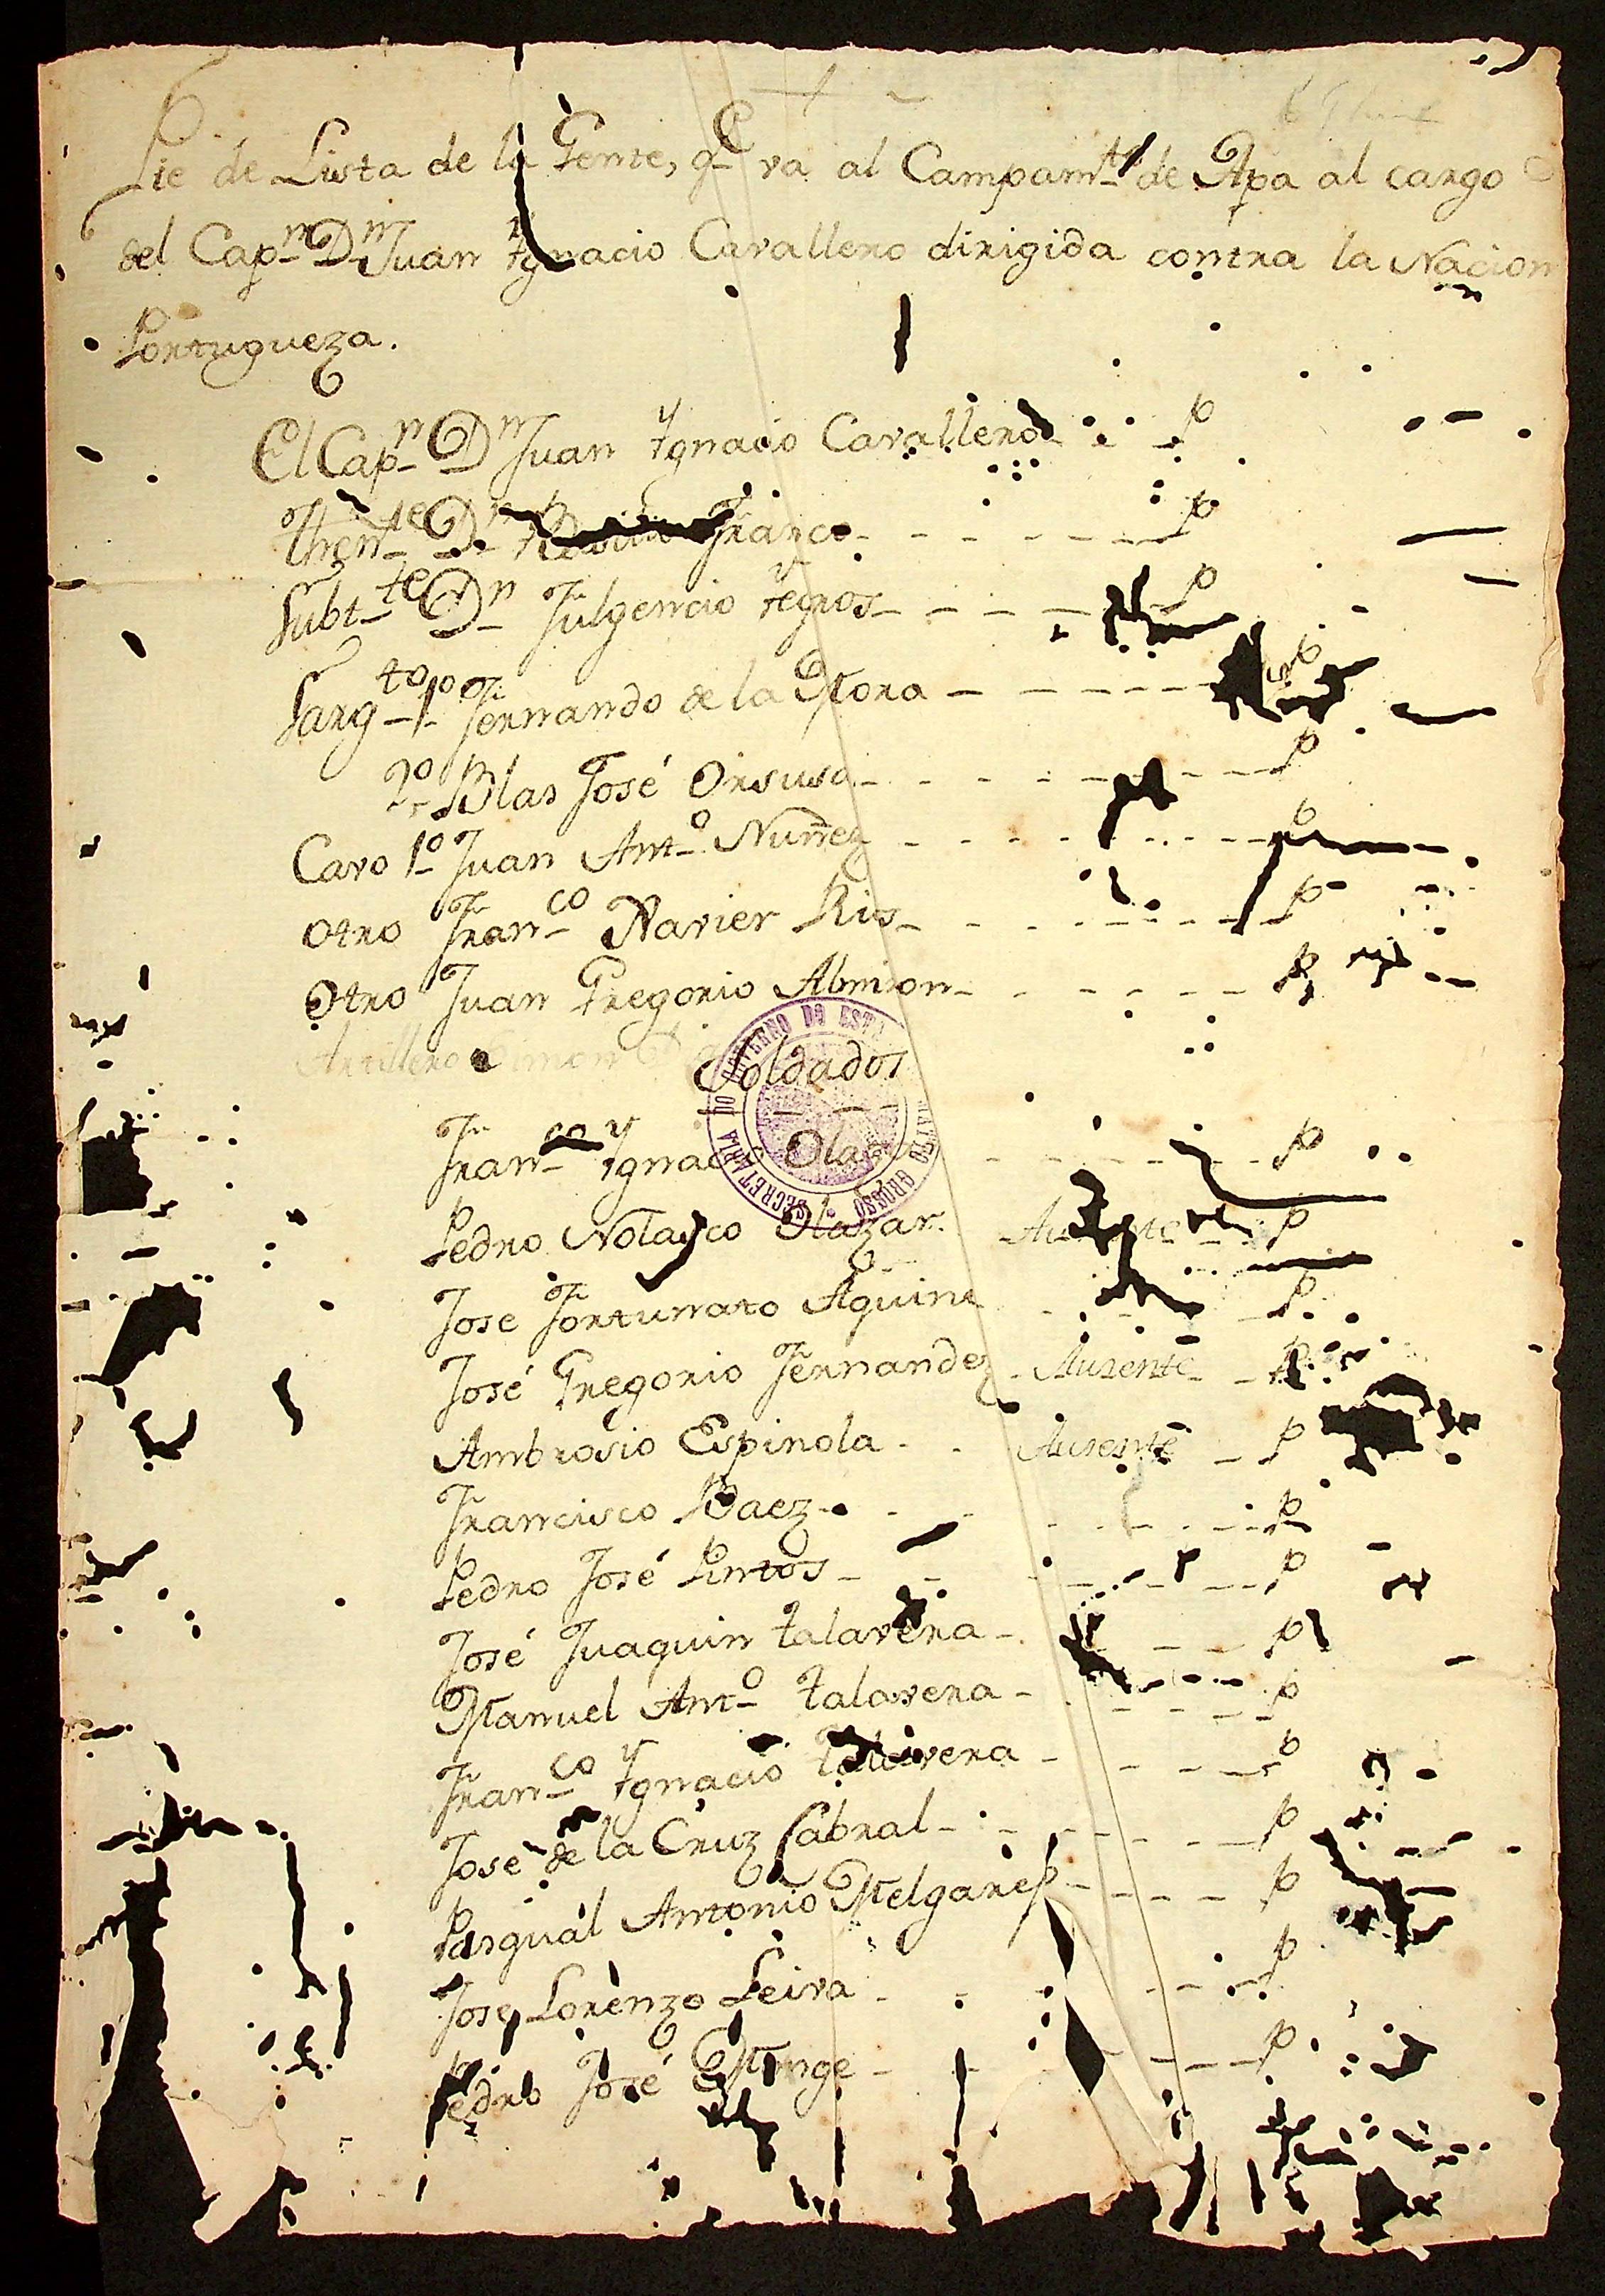 Pie de Lista de la Gente, q.e va al Campam.to de Apa al cargo
del Cap.n D.n Juan Ygnacio Cavallero dirigida contra la Nacion
Portugueza.
El Cap.n D.n Juan Ygnacio Cavallero - - P
Then.te D.n Franco - - - - - - P
Subt.te D.n Fulgencio Yegros - - - - P
Sarg.to 1.o Fernando de la Mora - - - - - - P
2.o Blas José Orsusa - - - - - - P
Cavo 1.o Juan Ant.o Nuñez - - - - - - P
Otro Fran.co Xavier Ris - - - - - - P
Otro Juan Gregorio Almiron - - - - - - P
Artillero Simon
Soldados
SECRETARIA DO GOVERNO DO ESTADO DE MATTO GROSSO
Fran.co Ygnacio - - - - - P
Pedro Nolasco Olazar. Ausente - P
Jose Fortunato Aquino - - - P
José Gregorio Fernandez - Ausente - P
Ambrosio Espinola - - Ausente - P
Francisco Baez - - - - - - P
Pedro José Pintos - - - - - P
José Juaquin talavera - - - - P
Manuel Ant.o talavera - - - - - P
Fran.co Ygnacio talavera - - - - - P
José de la Cruz Cabral - - - - - - P
Pasqual Antonio Melgarejo - - - - P
Jose Lorenzo Leiva - - - - - P
Pedro José Monge - - - - - P